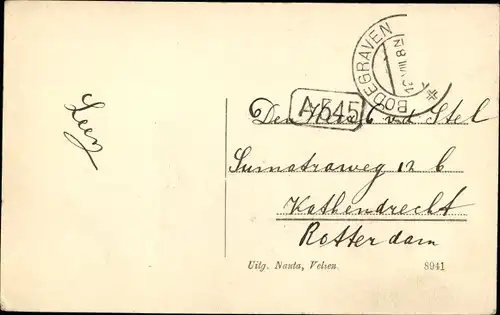 BODEGRAVEN
A 545
Leen
Den Heer C v d Stel
Sumatraweg 12 b
Kathendrecht
Rotterdam
Uitg. Nauta, Velsen. 8941